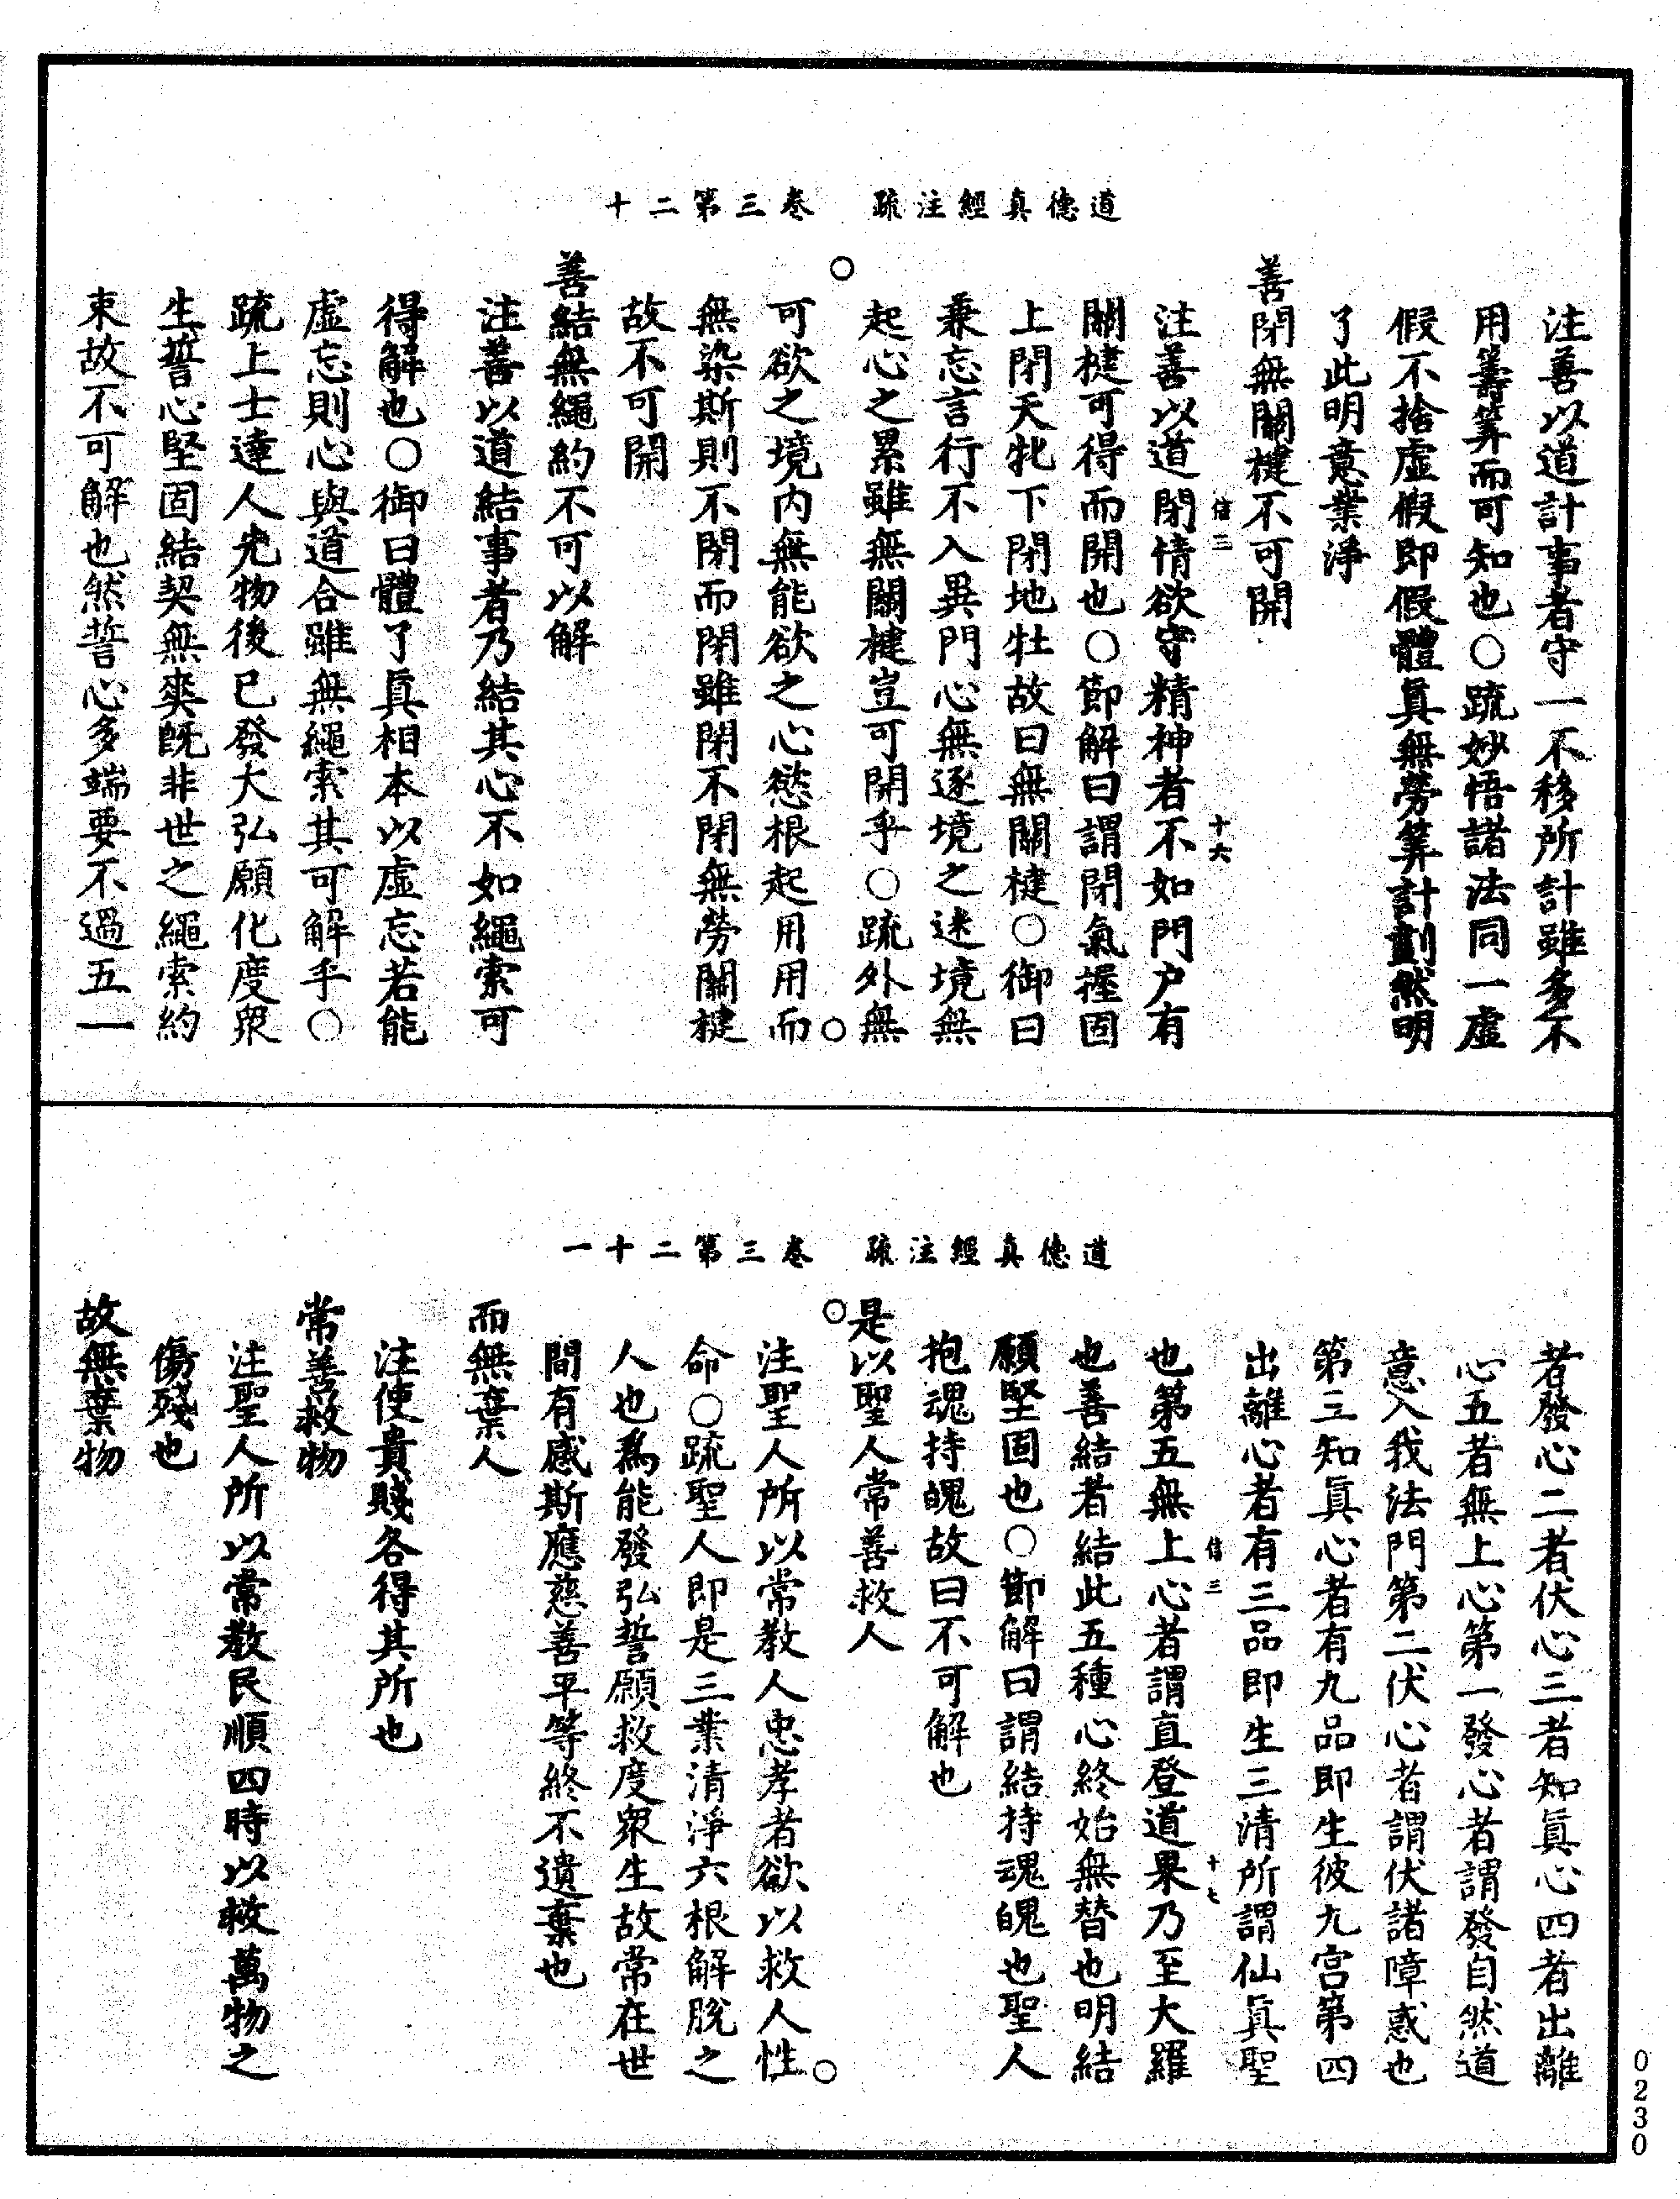 道德真經注疏　卷三第二十
注善以道計事者守一不移所計雖多不
用籌筭而可知也○疏妙悟諸法同一虛
假不捨虛假即假體眞無勞筭計劃然明
了此明意業淨
善閉無關楗不可開
信三　十六
注善以道閉情欲守精神者不如門户有
關楗可得而開也○節解曰謂閉氣握固
上閉天牝下閉地牡故曰無關楗○御曰
兼忘言行不入異門心無逐境之迷境無
起心之累雖無關楗豈可開乎○疏外無
可欲之境内無能欲之心慾根起用用而
無染斯則不閉而閉雖閉不閉無勞關楗
故不可開
善結無繩約不可以解
注善以道結事者乃結其心不如繩索可
得解也○御曰體了眞相本以虛忘若能
虛忘則心與道合雖無繩索其可解乎○
疏上士達人先物後已發大弘願化度衆
生誓心堅固結契無爽旣非世之繩索約
束故不可解也然誓心多端要不過五一
道德真經注疏　卷三第二十一
者發心二者伏心三者知眞心四者出離
心五者無上心第一發心者謂發自然道
意入我法門第二伏心者謂伏諸障惑也
第三知眞心者有九品即生彼九宫第四
出離心者有三品即生三清所謂仙眞聖
信三　十七
也第五無上心者謂直登道果乃至大羅
也善結者結此五種心終始無替也明結
願堅固也○節解曰謂結持魂魄也聖人
抱魂持魄故曰不可解也
是以聖人常善救人
注聖人所以常教人忠孝者欲以救人性
命○疏聖人即是三業清淨六根解脫之
人也爲能發弘誓願救度衆生故常在世
間有感斯應慈善平等終不遺棄也
而無棄人
注使貴賤各得其所也
常善救物
注聖人所以常教民順四時以救萬物之
傷殘也
故無棄物
0230